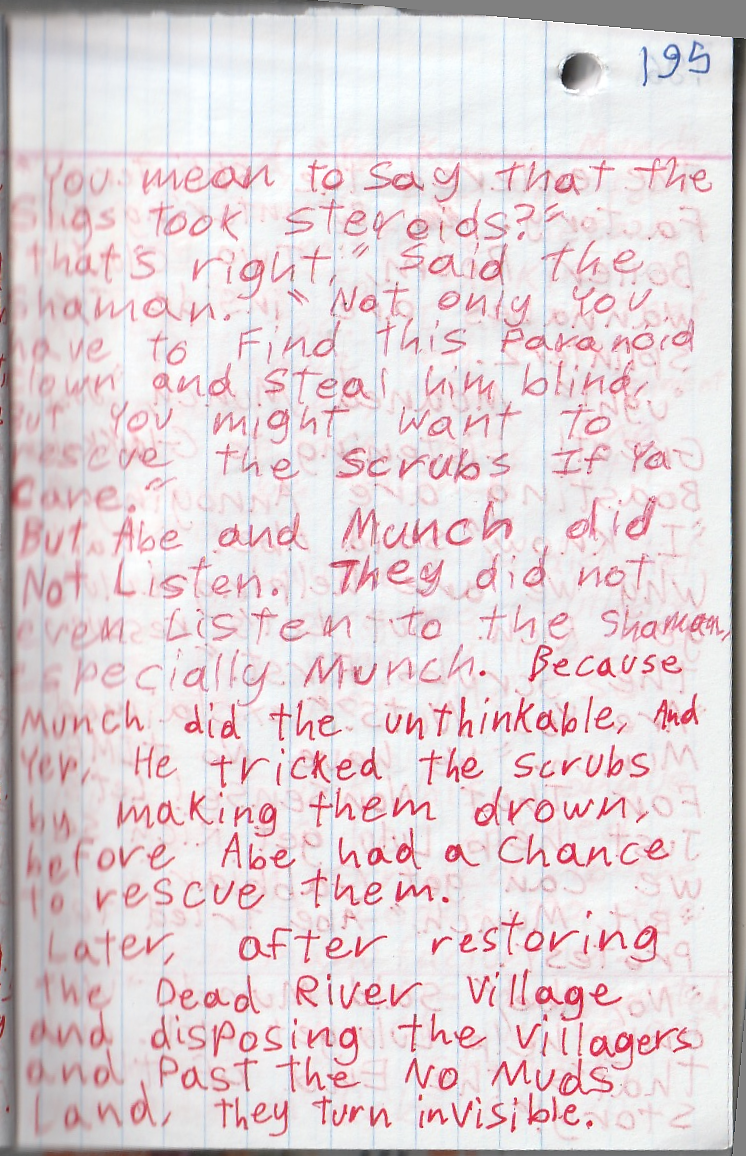 195
"You mean to say that the
Sligs took steroids?"
"that's right," Said the
Shaman. "Not only You
have to Find this Paranoid
Clown and Steal him blind,
But You might want to
rescue the Scrubs If Ya
Care."
But Abe and Munch did
Not Listen. They did not
even Listen to the Shaman,
especially Munch. Because
Munch did the unthinkable, And
Yep, He tricked the scrubs
by making them drown,
before Abe had a Chance
to rescue them.
Later, after restoring
the Dead River Village
and disposing the Villagers
and Past the No Muds
Land, they turn invisible.